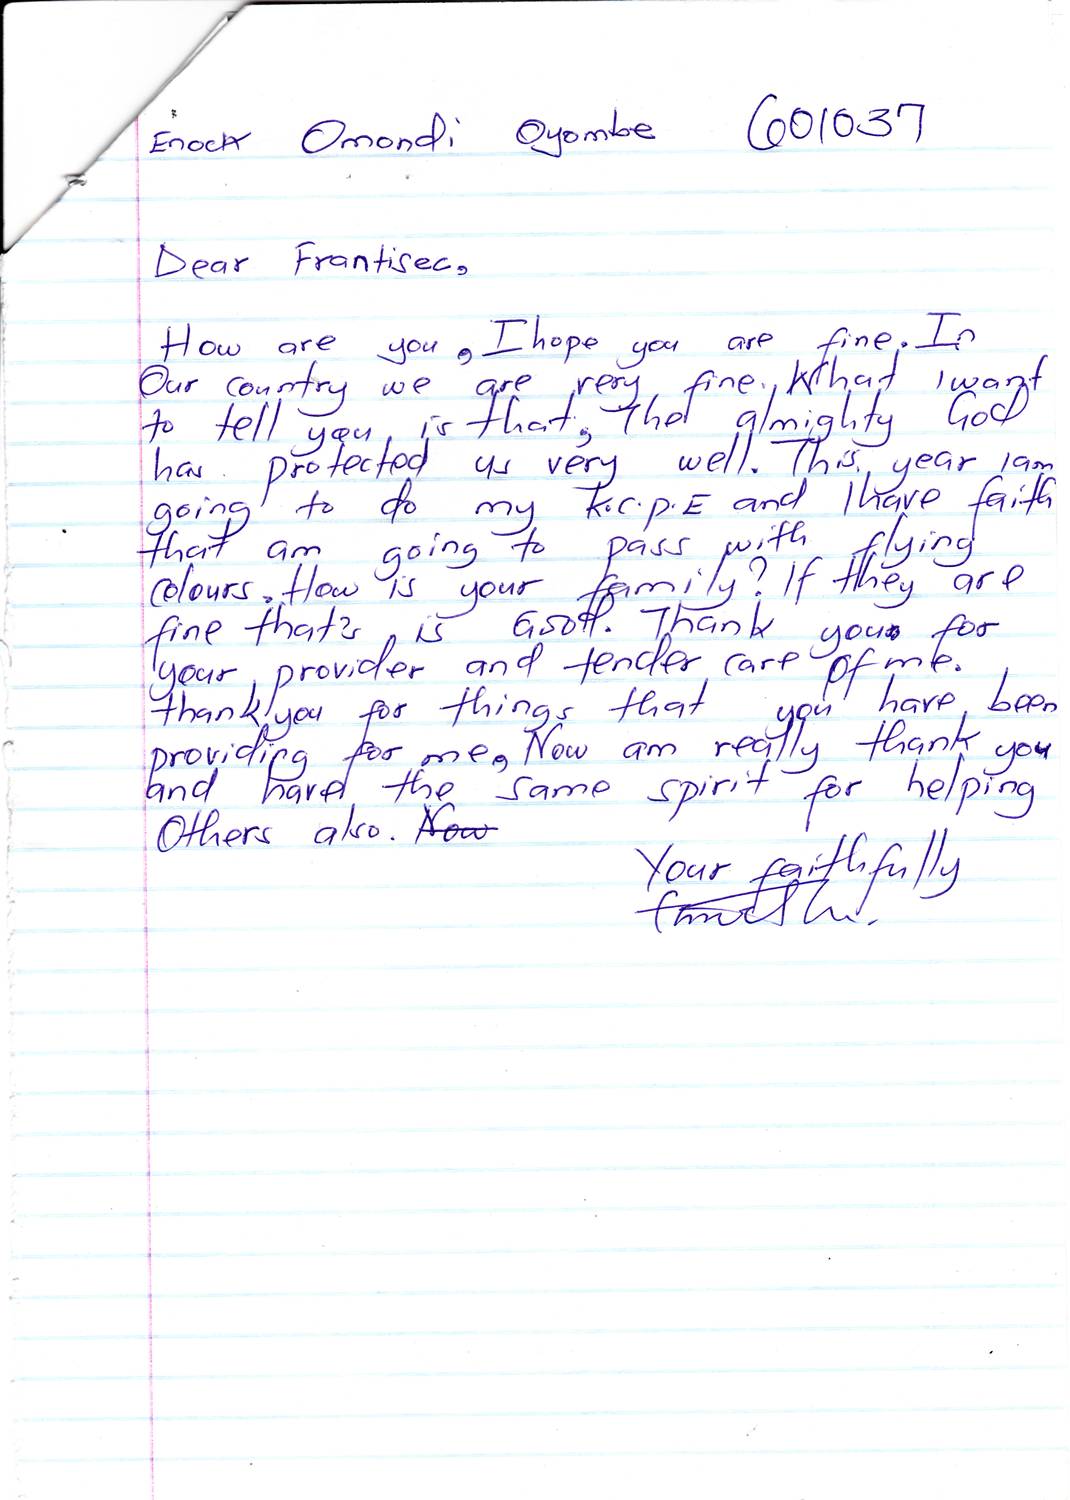 Enock Omondi Oyombe 601037
Dear Frantisec,
How are you, I hope you are fine. In
Our country we are very fine. What I want
to tell you is that, The almighty God
has protected us very well. This year I am
going to do my K.C.P.E and I have faith
that am going to pass with flying
colours. How is your family? If they are
fine that's is Good. Thank you for
your provider and tender care of me.
thank you for things that you have been
providing for me, Now am really thank you
and have the same spirit for helping
Others also. Now
Your faithfully